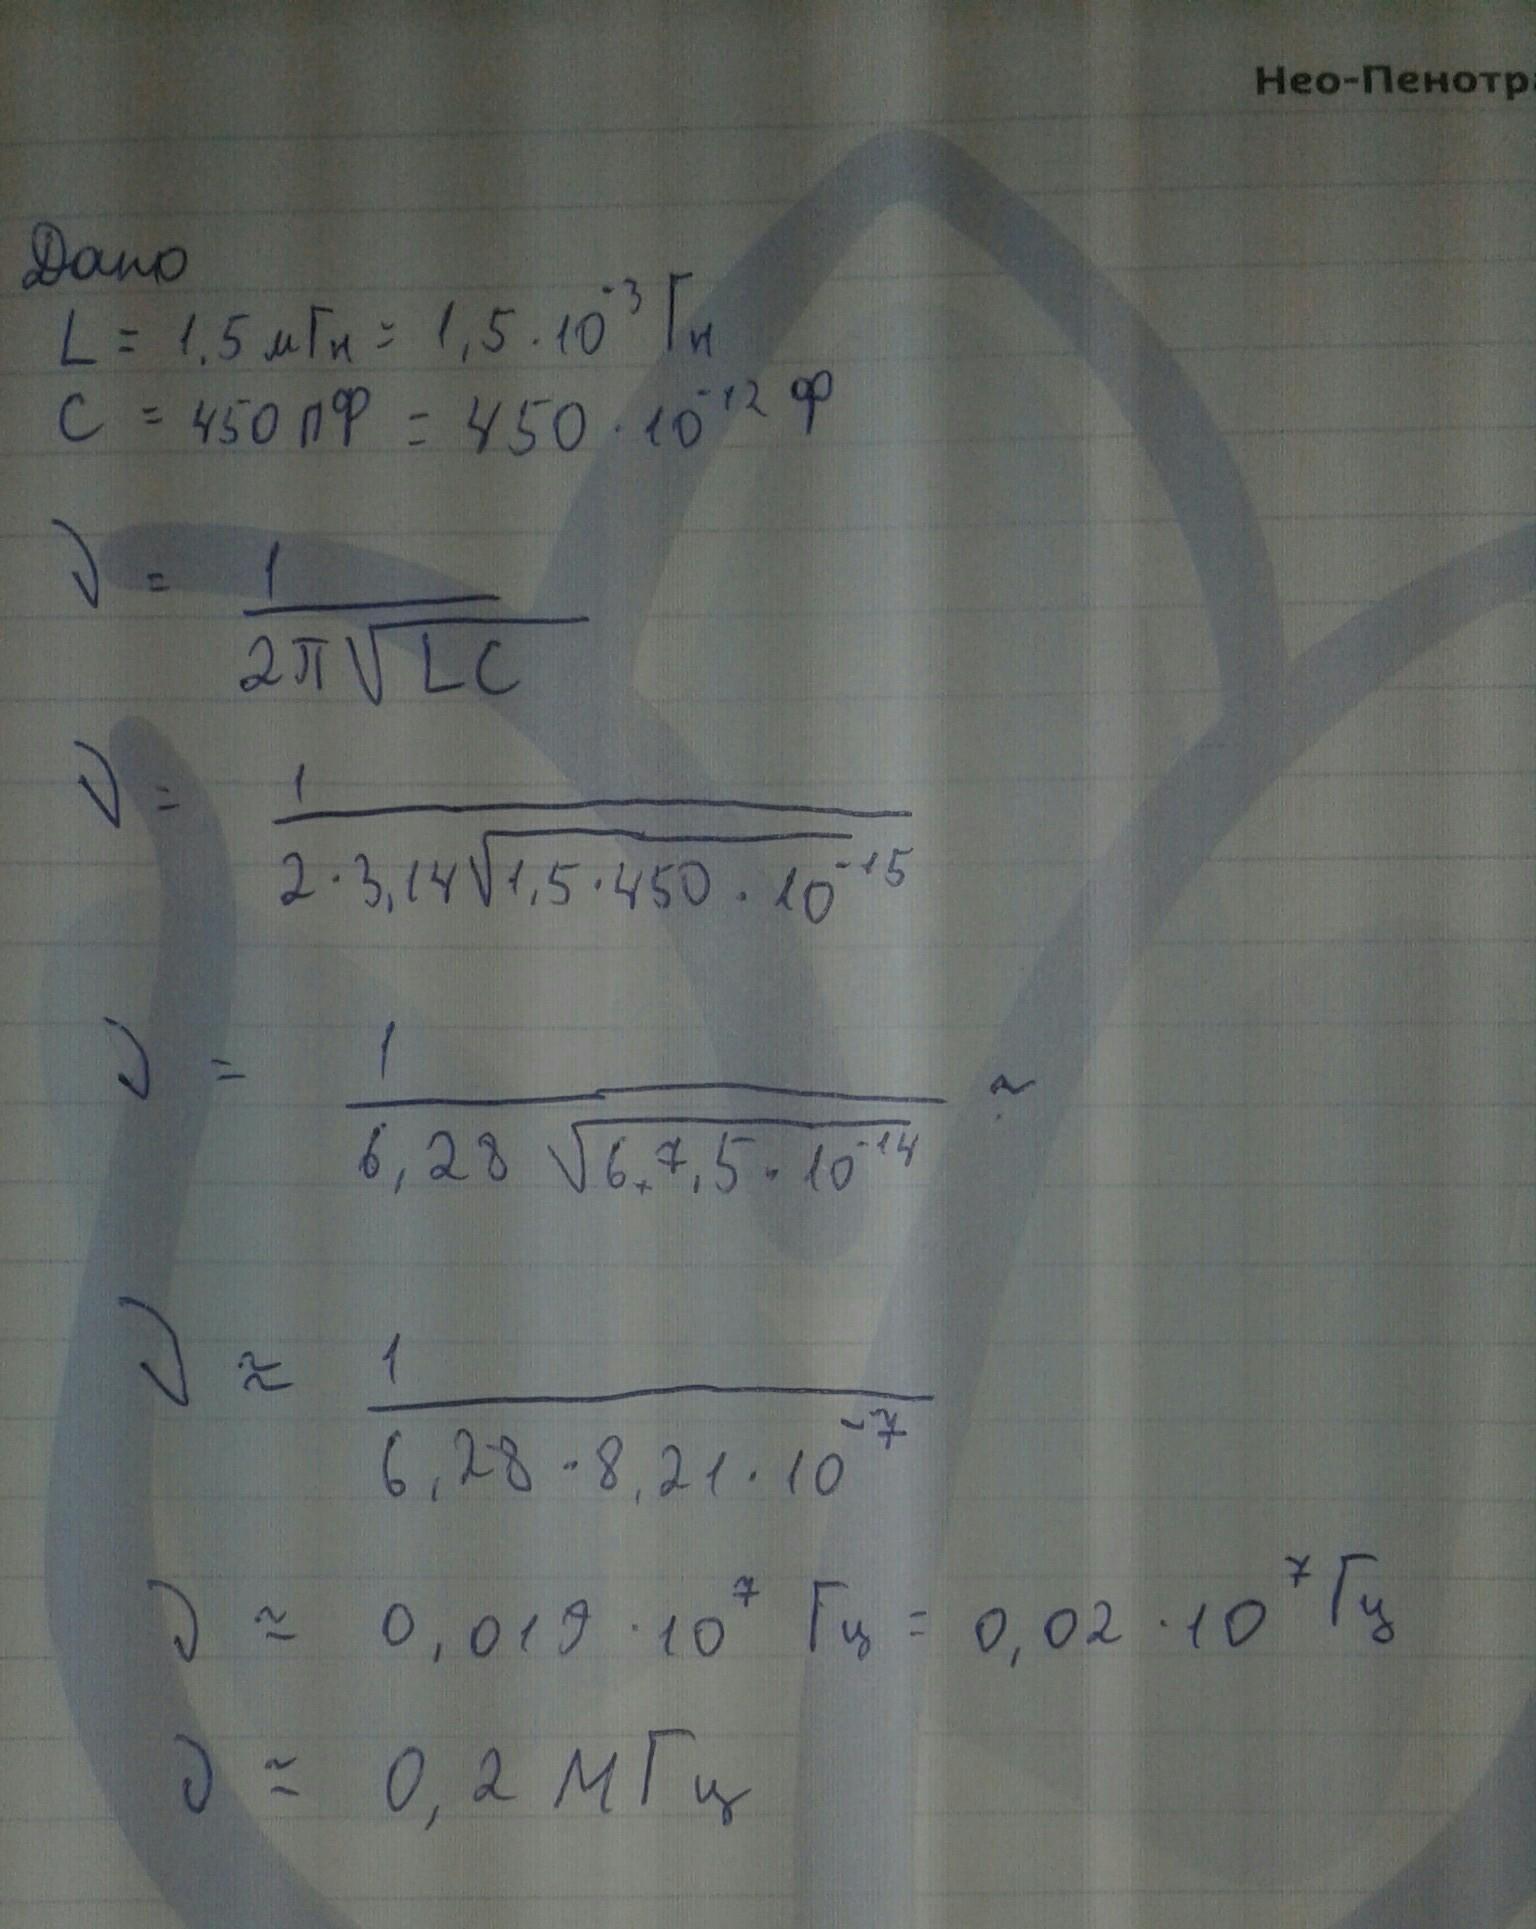 Нео-Пенотра
Дано
L = 1.5 мГн = 1,5 · 10⁻³ Гн
C = 450 пФ = 450 · 10⁻¹² Ф
ν = 1 / 2π√LC
ν = 1 / 2·3,14√1,5·450 · 10⁻¹⁵
ν = 1 / 6,28 √6,7,5 · 10⁻¹⁴ ≈
ν ≈ 1 / 6,28 · 8,21 · 10⁻⁷
ν ≈ 0,019 · 10⁷ Гц = 0,02 · 10⁷ Гц
ν ≈ 0,2 МГц